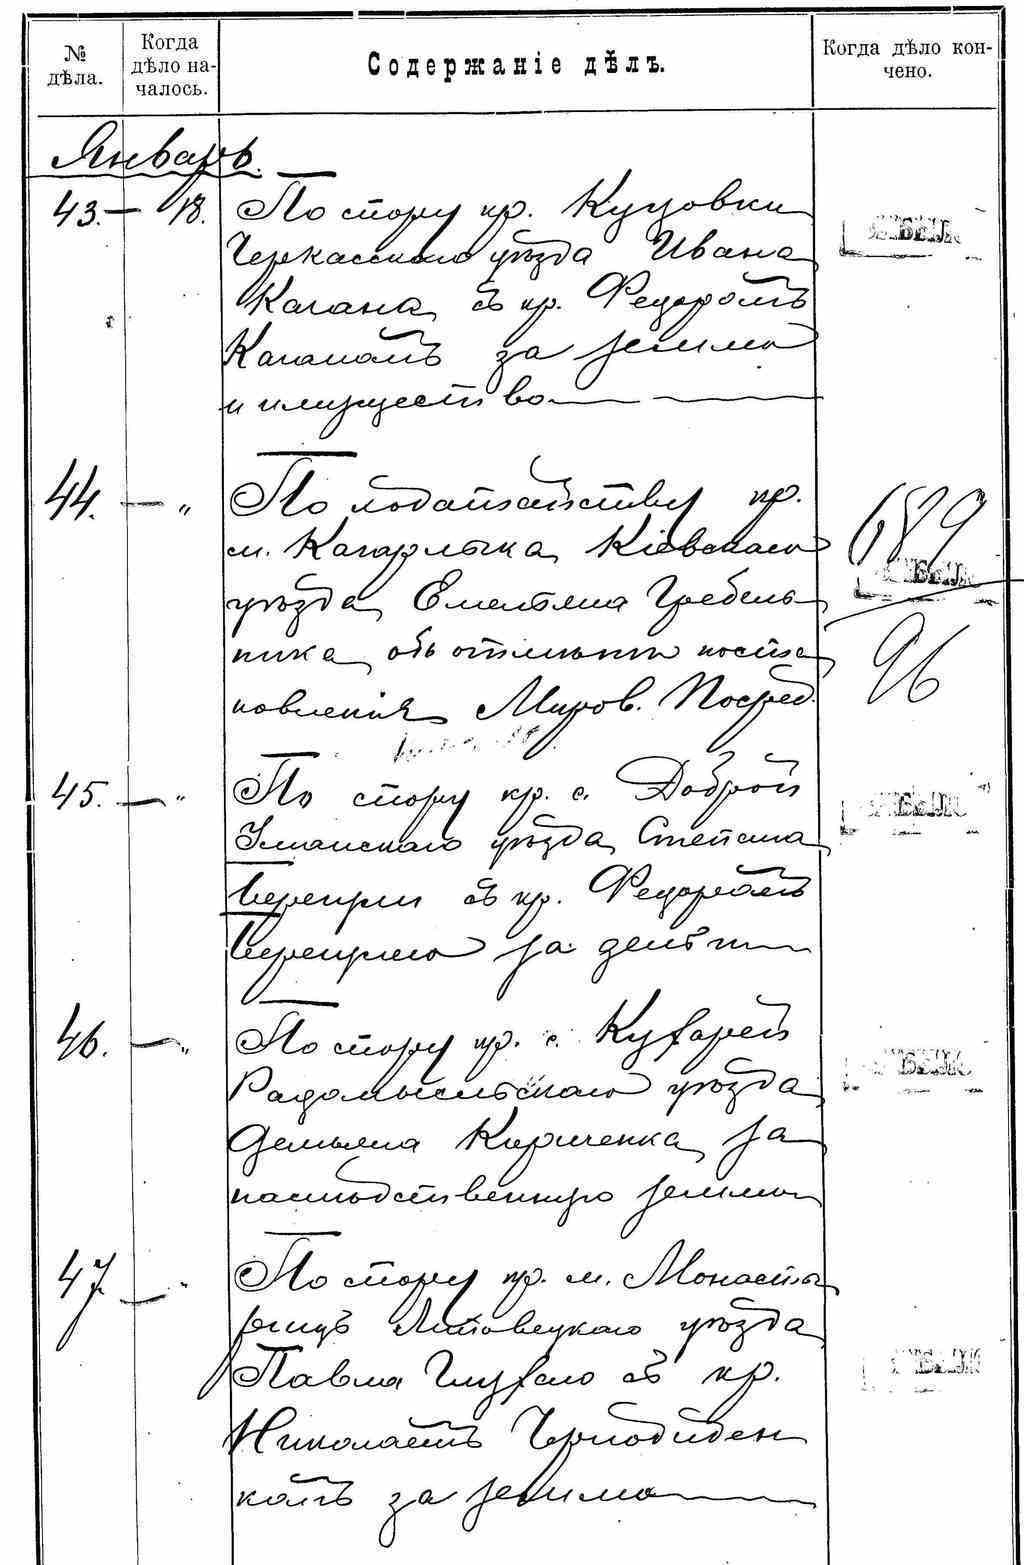 № дѣла.
Когда дѣло на-
чалось.
Содержаніе дѣлъ.
Когда дѣло кон-
чено.
Январь.
43. — 18. По спору кр. Куцовки
Черкасскаго уѣзда Ивана
Кагана съ кр. Федоромъ
Каганомъ за землю
и имущество
44. — " По ходатайству кр.
м. Кагарлыка Кіевскаго
уѣзда Емельяна Гребель-
ника объ отмѣнѣ поста
новленія Миров. Посред.
689
96
45. — " По спору кр. с. Доброй
Уманскаго уѣзда Степана
съ кр. Федоромъ
за деньги
46. — " По спору кр. с. Кухарей
Радомысльскаго уѣзда
Демьяна Кириченка за
наслѣдственную землю
47. — " По спору кр. м. Монасты
рищъ Липовецкаго уѣзда
Павла Глухаго съ кр.
Николаемъ Чернодиден
комъ за землю